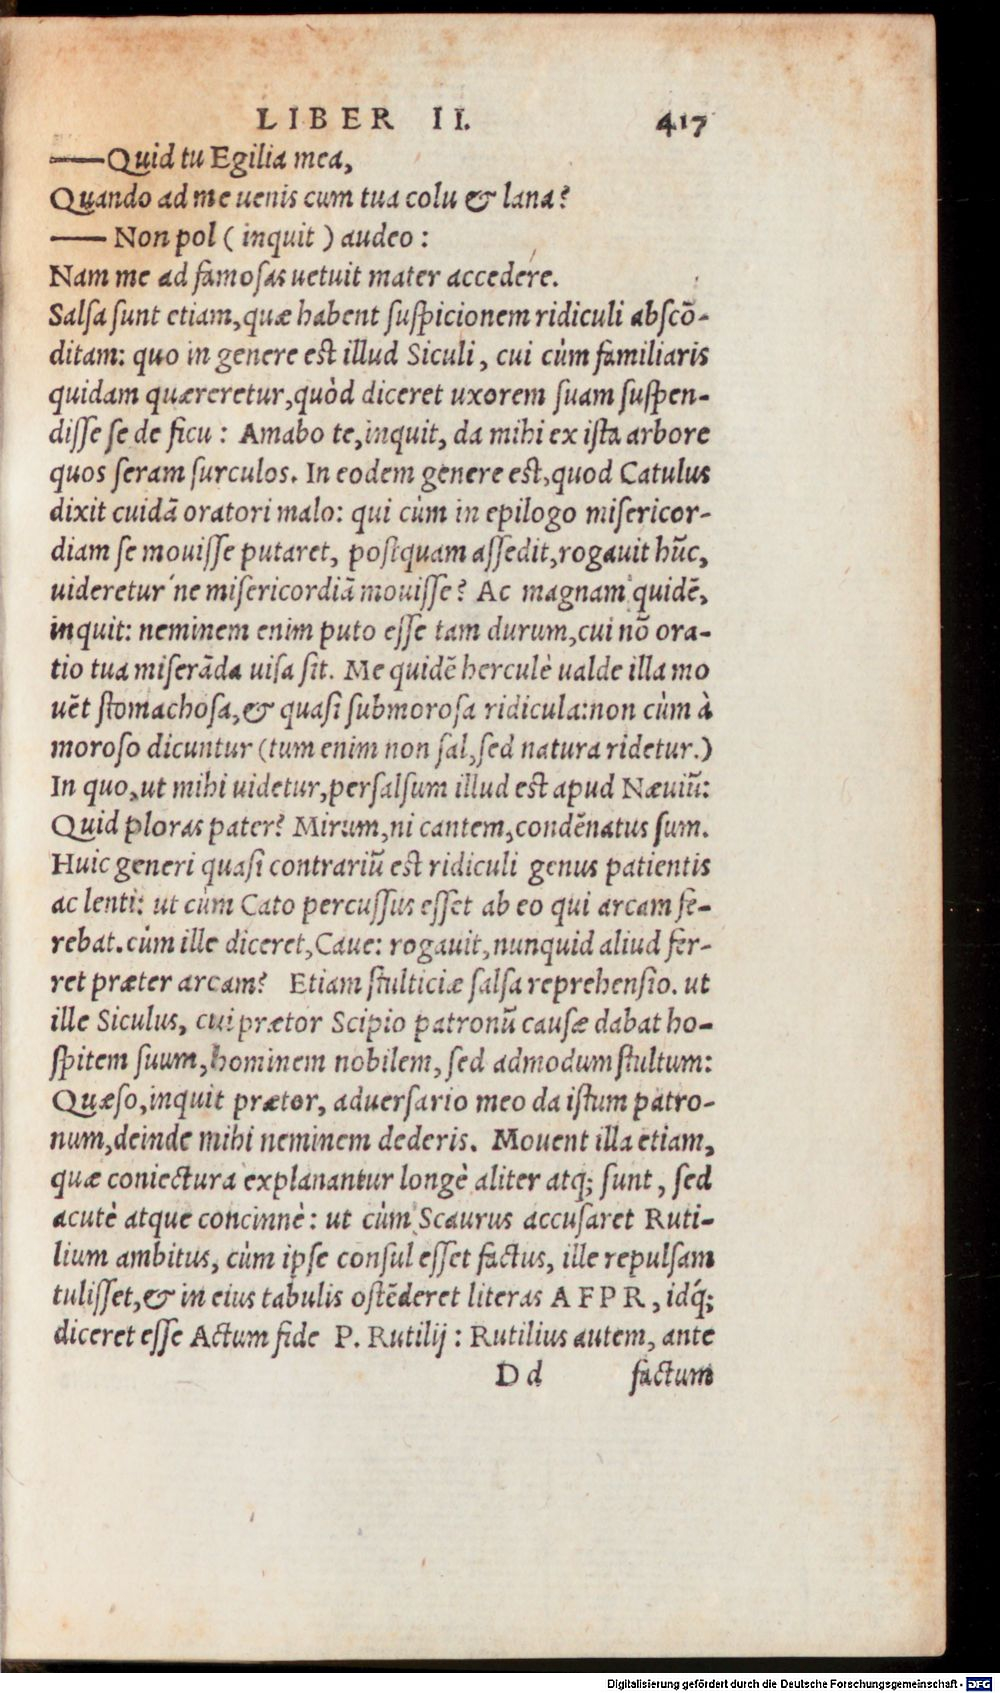 LIBER II. 417
——Quid tu Egilia mea,
Quando ad me uenis cum tua colu & lana?
—— Non pol ( inquit ) audeo :
Nam me ad famosas uetuit mater accedere.
Salsa sunt etiam, quæ habent suspicionem ridiculi abscō-
ditam: quo in genere est illud Siculi, cui cùm familiaris
quidam quæreretur, quòd diceret uxorem suam suspen-
disse se de ficu : Amabo te, inquit, da mihi ex ista arbore
quos seram surculos. In eodem genere est, quod Catulus
dixit cuidā oratori malo: qui cùm in epilogo misericor-
diam se mouisse putaret, postquam assedit, rogauit hūc,
uideretur´ne misericordiā mouisse? Ac magnam quidē,
inquit: neminem enim puto esse tam durum, cui nō ora-
tio tua miserāda uisa sit. Me quidē herculè ualde illa mo
uēt stomachosa, & quasi submorosa ridicula: non cùm à
moroso dicuntur (tum enim non sal, sed natura ridetur.)
In quo, ut mihi uidetur, persalsum illud est apud Næuiū:
Quid ploras pater? Mirum, ni cantem, condēnatus sum.
Huic generi quasi contrariū est ridiculi genus patientis
ac lenti: ut cùm Cato percussus esset ab eo qui arcam fe-
rebat. cùm ille diceret, Caue: rogauit, nunquid aliud fer-
ret præter arcam? Etiam stulticiæ salsa reprehensio. ut
ille Siculus, cui prætor Scipio patronū causæ dabat ho-
spitem suum, hominem nobilem, sed admodum stultum:
Quæso, inquit prætor, aduersario meo da istum patro-
num, deinde mihi neminem dederis. Mouent illa etiam,
quæ coniectura explanantur longè aliter atq; sunt, sed
acutè atque concinnè : ut cùm Scaurus accusaret Ruti-
lium ambitus, cùm ipse consul esset factus, ille repulsam
tulisset, & in eius tabulis ostēderet literas A F P R, idq́;
diceret esse Actum fide P. Rutilij : Rutilius autem, ante
D d factum
Digitalisierung gefördert durch die Deutsche Forschungsgemeinschaft - DFG